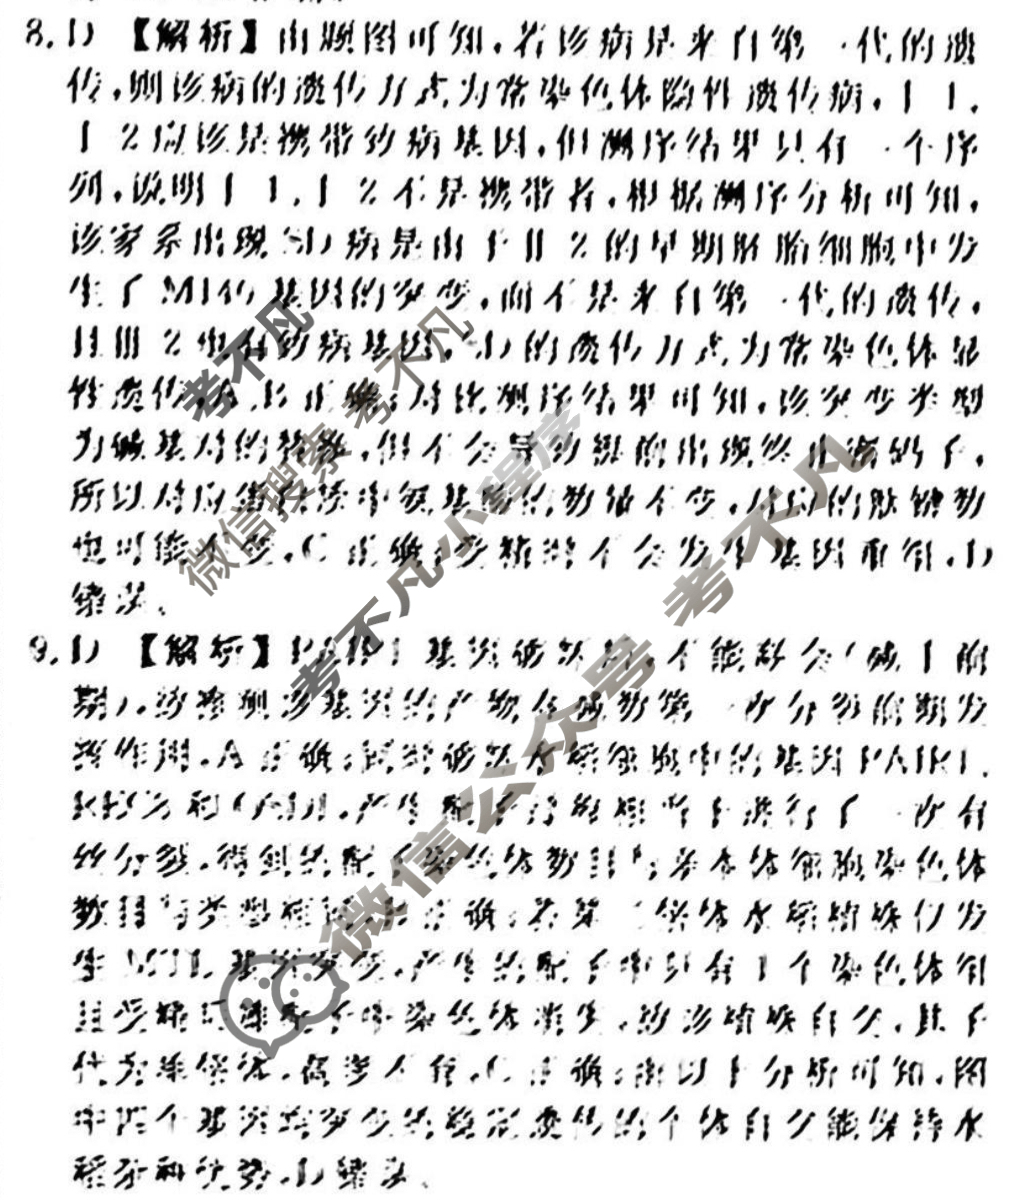 8. D 【解析】由题图可知,若该病是来自第一代的遗
传,则该病的遗传方式为常染色体隐性遗传病,Ⅰ-1、
Ⅰ-2应该是携带致病基因,但测序结果只有一个序
列,说明Ⅰ-1、Ⅰ-2不是携带者,根据测序分析可知,
该家系出现SD病是由于Ⅱ-2的早期胚胎细胞中发
生了 基因的突变,而不是来自第一代的遗传,
且Ⅲ-2也有致病基因, 的遗传方式为常染色体显
性遗传,A、B正确;对比测序结果可知,该突变类型
为碱基对的替换,但不会导致提前出现终止密码子,
所以对应蛋白质中氨基酸的数量不变,对应的肽键数
也可能不变,C正确;受精时不会发生基因重组,D
错误。
9. D 【解析】PAIR1基因被敲除后,不能联会(减Ⅰ前
期),故推测该基因的产物在减数第一次分裂前期发
挥作用,A正确;同时敲除水稻细胞中的基因PAIR1、
REC8和OSD1,产生配子过程相当于进行了一次有
丝分裂,得到的配子染色体数目与亲本体细胞染色体
数目与类型相同,B正确;若某二倍体水稻植株仅发
生MTL基因突变,产生的配子中只有1个染色体组
且受精后 子中染色体消失,故该植株自交,其子
代为单倍体,高度不育,C正确;由以上分析可知,图
中四个基因均突变的 个体自交能保持水
稻杂种优势,D错误。
考不凡
微信搜索 考不凡
考不凡小程序
微信公众号 考不凡